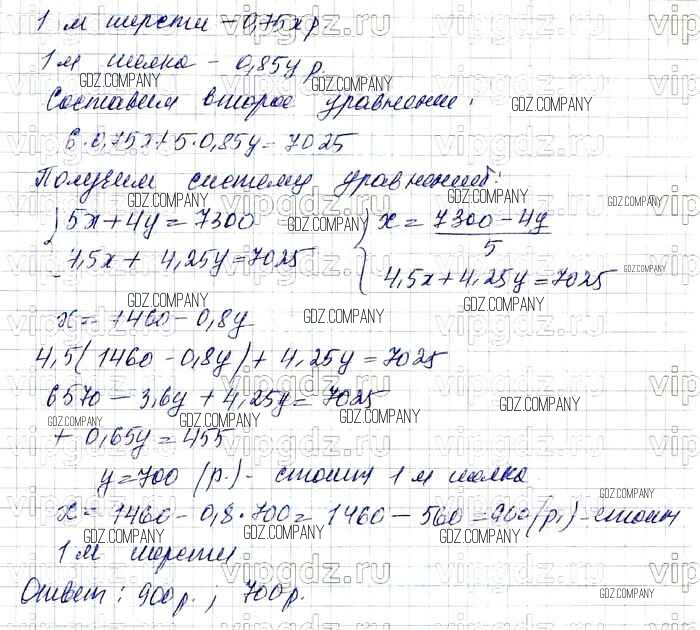 1 м шерсти – 0,75x р
1 м шёлка – 0,85y р.
Составим второе уравнение:
6·0,75x+5·0,85y=7025
Получим систему уравнений:
{ 5x+4y=7300 { x = (7300-4y)/5
4,5x + 4,25y=7025 4,5x+4,25y=7025
x = 1460-0,8y
4,5(1460-0,8y)+4,25y=7025
6570-3,6y+4,25y=7025
+ 0,65y=455
y=700 (р.) - стоит 1 м шёлка
x = 1460-0,8·700=1460-560=900(р.)-стоит
1 м шерсти
Ответ: 900 р.; 700 р.
vipgdz.ru
GDZ.COMPANY